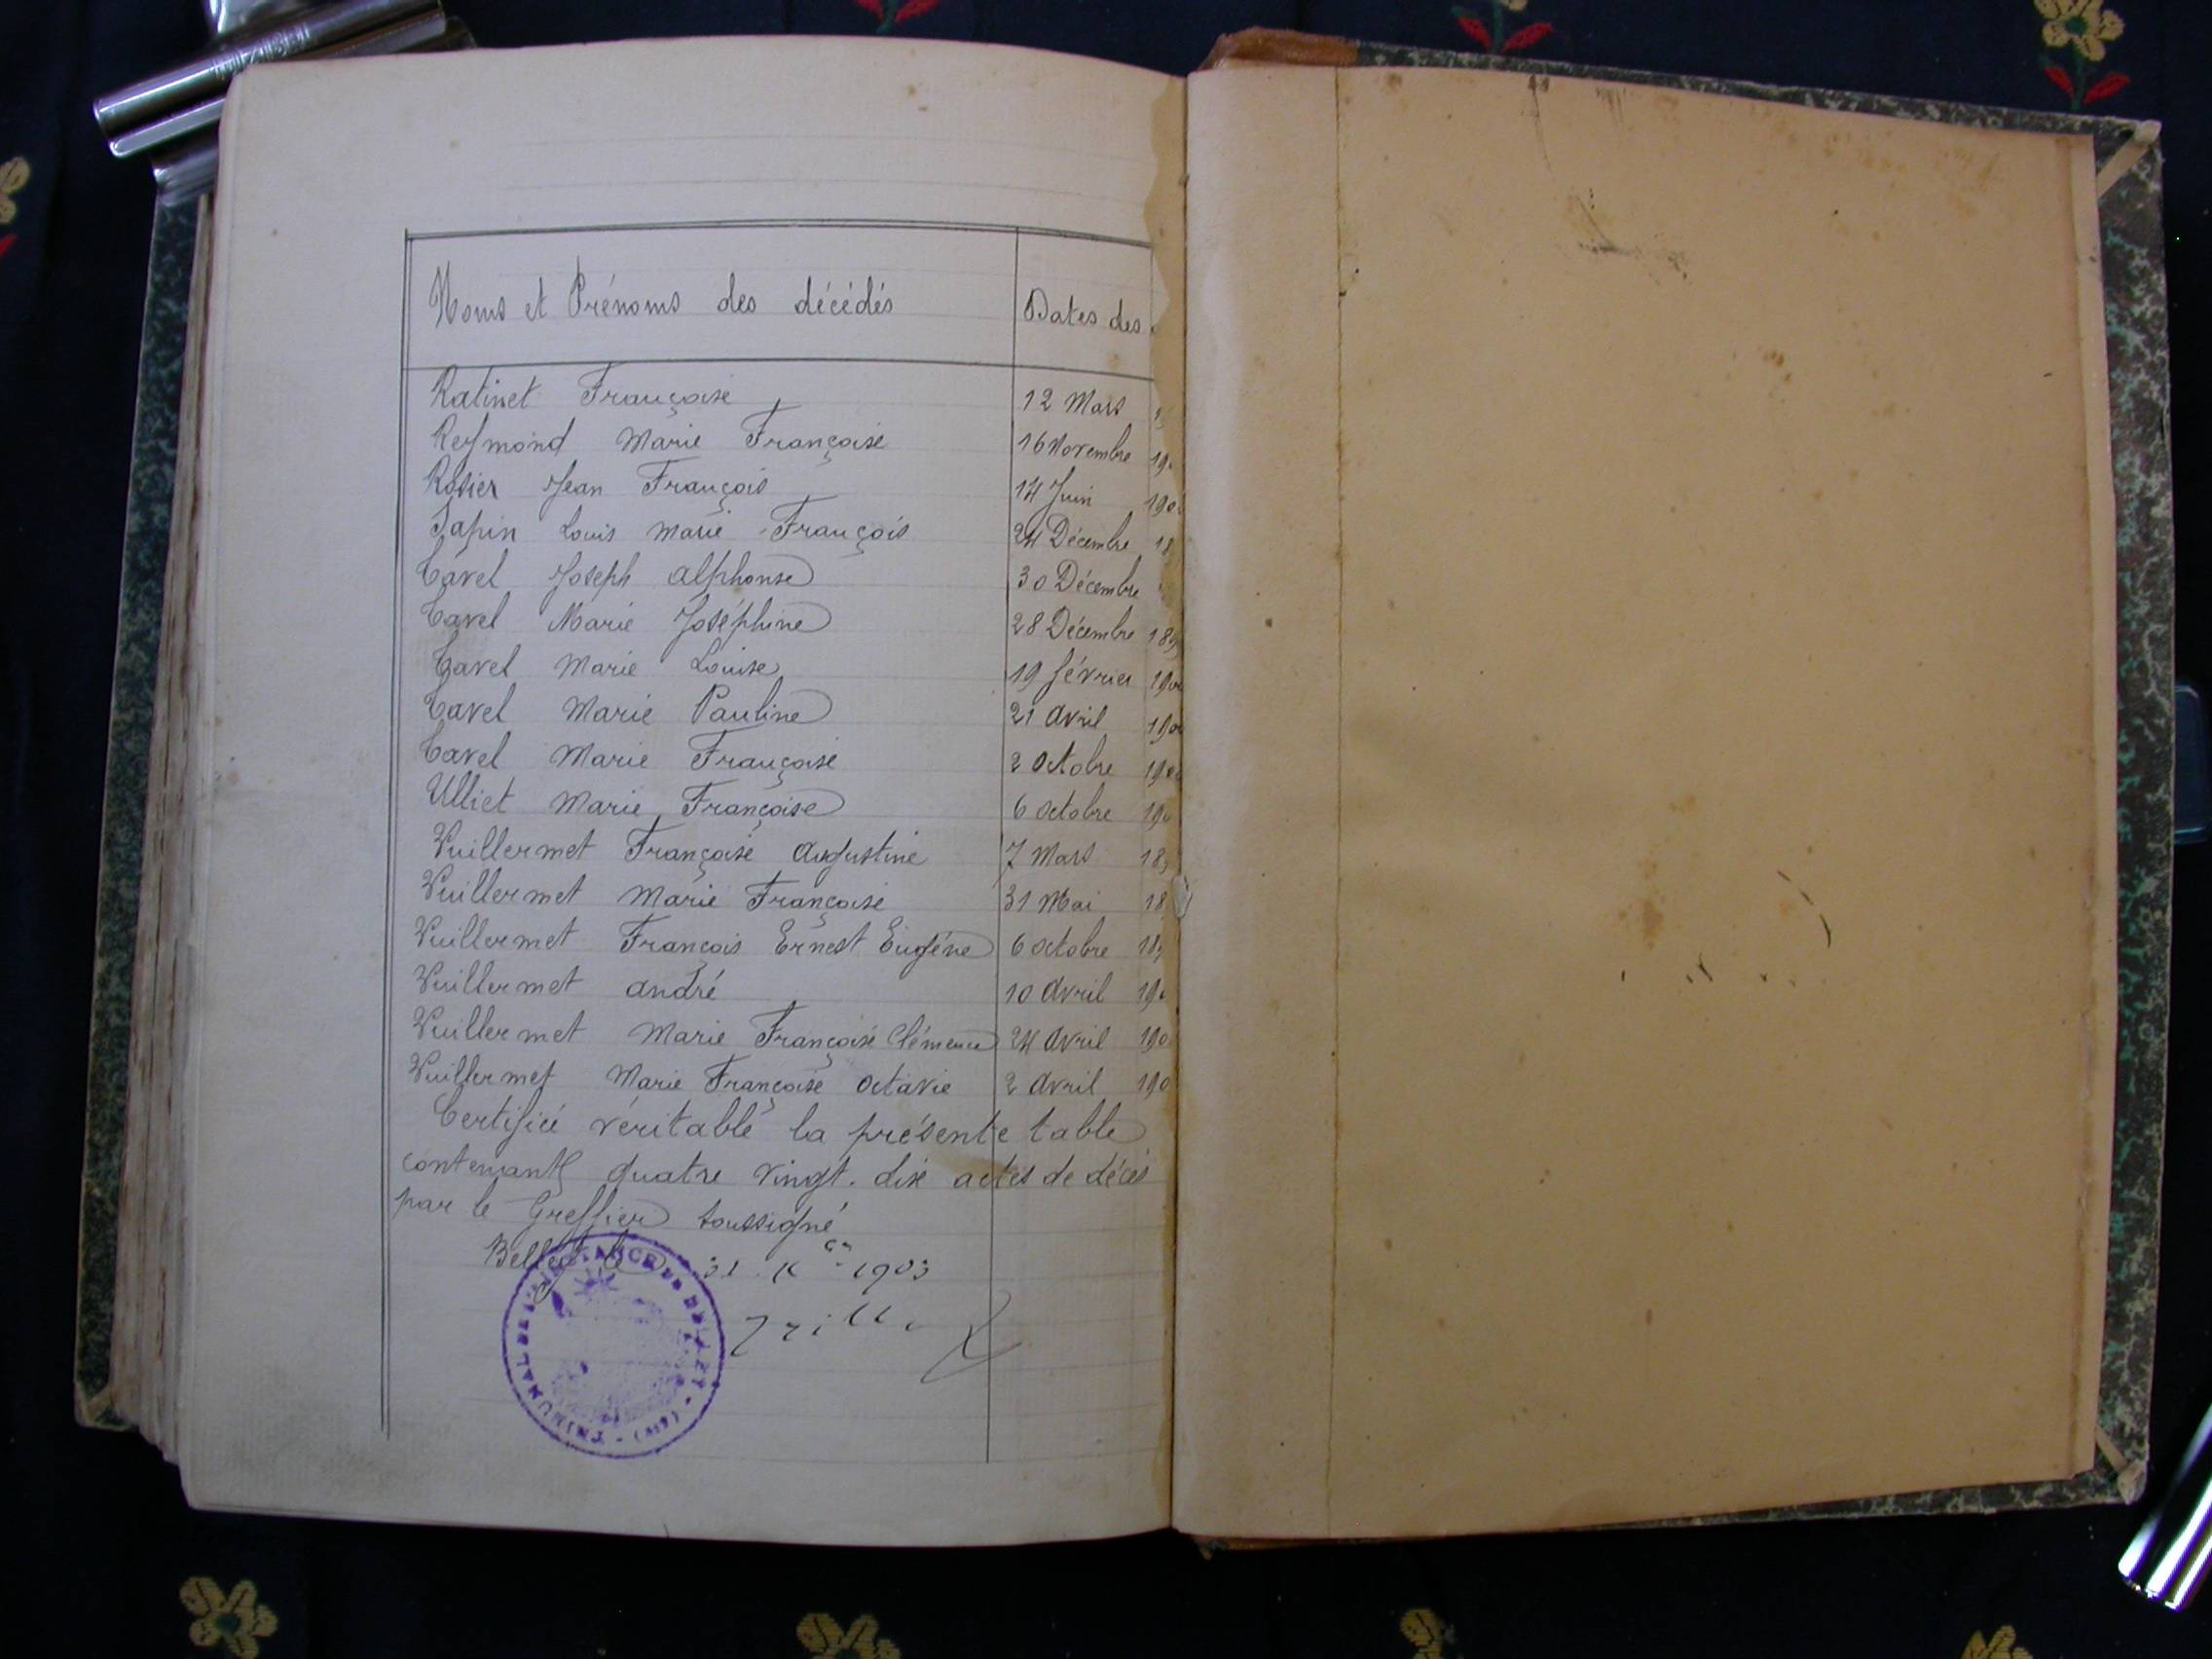 Noms et Prénoms des décédés Dates des
Ratinet Françoise 12 Mars
Reymond Marie Françoise 16 Novembre 190
Rosier Jean François 14 Juin 190
Sapin Louis Marie François 24 Décembre 18
Tavel Joseph Alphonse 30 Décembre
Tavel Marie Joséphine 28 Décembre 189
Tavel Marie Louise 19 février 190
Tavel Marie Pauline 21 Avril 190
Tavel Marie Françoise 2 Octobre 190
Ulliet Marie Françoise 6 octobre 190
Vuillermet Françoise Augustine 7 Mars 18
Vuillermet Marie Françoise 31 Mai 18
Vuillermet François Ernest Eugène 6 octobre 18
Vuillermet André 10 Avril 190
Vuillermet Marie Françoise Clémence 24 Avril 190
Vuillermet Marie Françoise Octavie 2 Avril 190
Certifié véritable la présente table
contenant quatre vingt-dix actes de décès
par le Greffier soussigné
Belley le 1903
TRIBUNAL DE 1ère INSTANCE DE BELLEY - (AIN) -